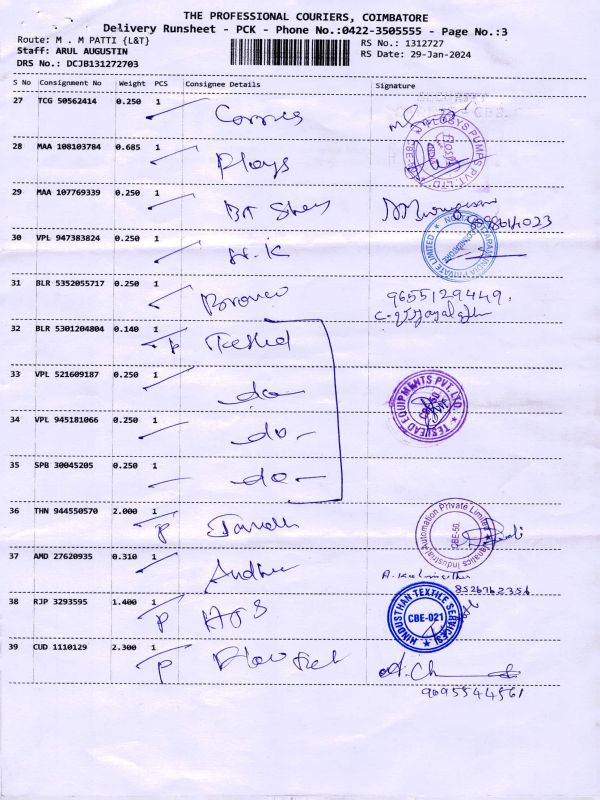 THE PROFESSIONAL COURIERS, COIMBATORE
Delivery Runsheet - PCK - Phone No.:0422-3505555 - Page No.:3
Route: M . M PATTI {L&T}
RS No.: 1312727
Staff: ARUL AUGUSTIN
RS Date: 29-Jan-2024
DRS No.: DCJB131272703
S No Consignment No Weight PCS Consignee Details Signature
27 TCG 50562414 0.250 1
28 MAA 108103784 0.685 1 Plays
29 MAA 107769339 0.250 1
30 VPL 947383824 0.250 1 H.K
31 BLR 5352055717 0.250 1 Bronco 9655129449.
32 BLR 5301204804 0.140 1 P
33 VPL 521609187 0.250 1 do
TESHEAD EQUIPMENTS PVT. LTD.
34 VPL 945181066 0.250 1 do -
35 SPB 30045205 0.250 1 do -
36 THN 944550570 2.000 1 P
Industrial Automation Private Limited
CBE-50.
37 AMD 27620935 0.310 1
8526762356
38 RJP 3293595 1.400 1 P
HINDUSTHAN TEXTILE SERVICES
CBE-021
39 CUD 1110129 2.300 1 P
9695544561